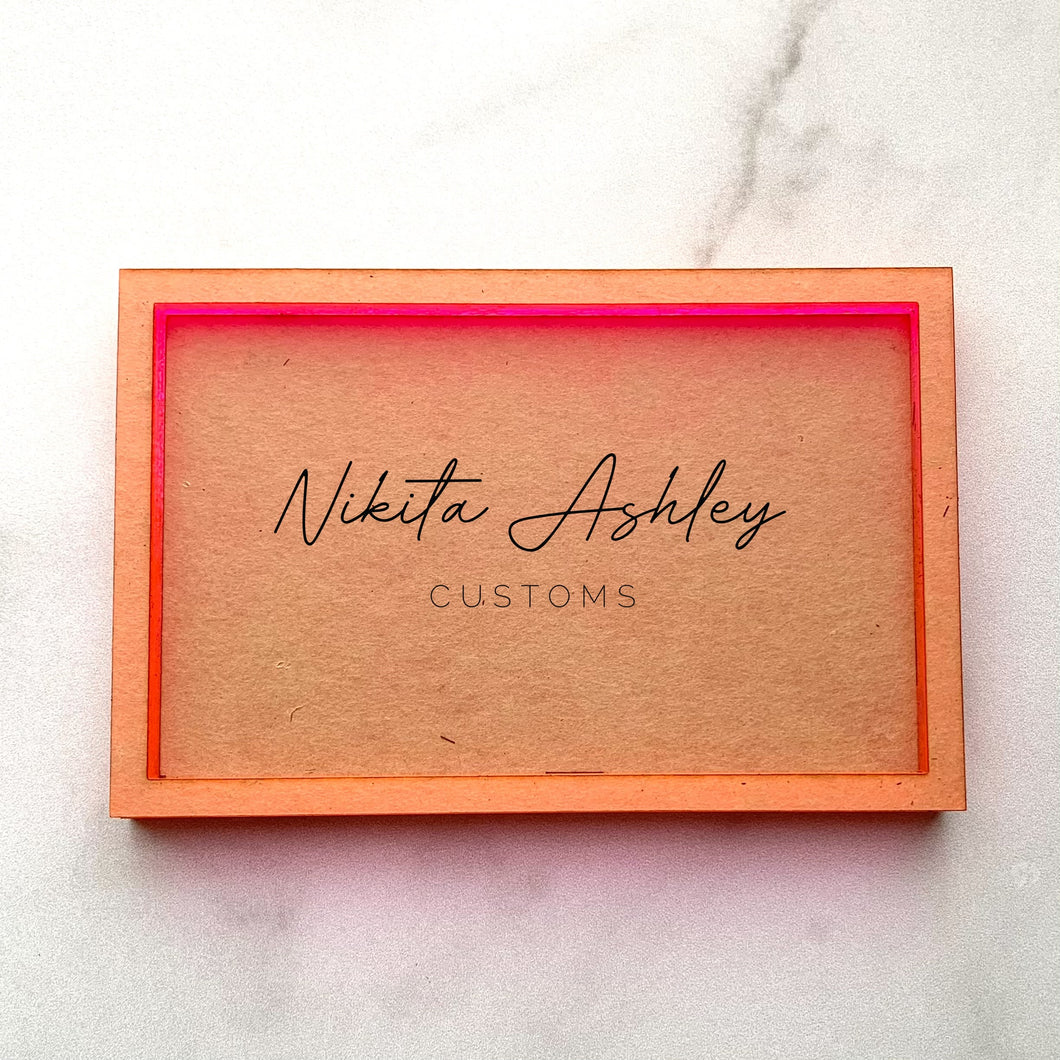 Nikita Ashley
CUSTOMS